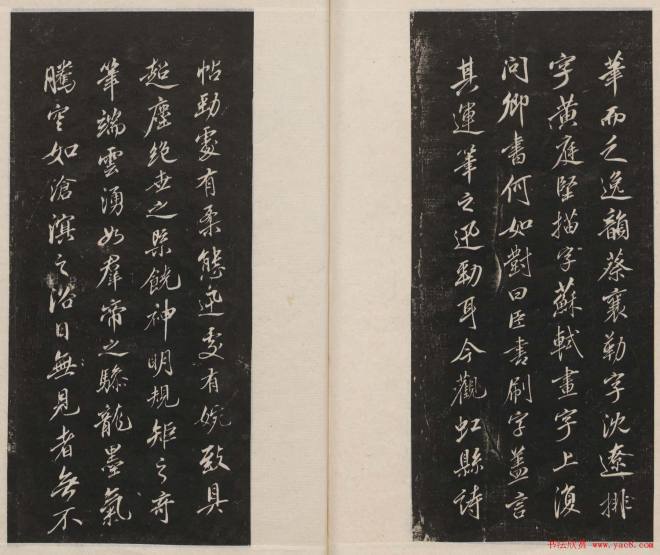 華而乏逸韻蔡襄勒字沈遼排
字黃庭堅描字蘇軾畫字上復
问卿書何如對曰臣書刷字蓋言
其運筆之迅勁耳今觀虹縣诗
帖勁處有柔態迅處有婉致具
超塵绝世之槩饒神明規矩之奇
筆端雲湧如羣帝之驂龍墨氣
騰空如滄溟之浴日無見者無不
书法欣赏 www.yac8.com